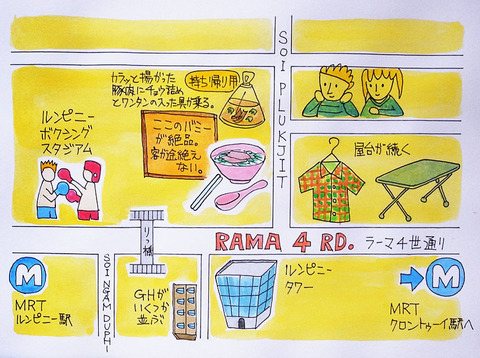 SOI PLUKJIT
カラッと揚がった
豚肉にチョウ詰め
とワンタンの入った具が乗る。
持ち帰り用
ルンピニー
ボクシング
スタジアム
ここのバミー
が絶品。
客が途絶え
ない。
屋台が続く
RAMA 4 RD. ラーマ4世通り
りっ橋
SOI NGAM DUPHI
M
MRT
ルンピニー駅
GHが
いくつか
並ぶ
ルンピニー
タワー
M
MRT
クロントゥーイ駅へ